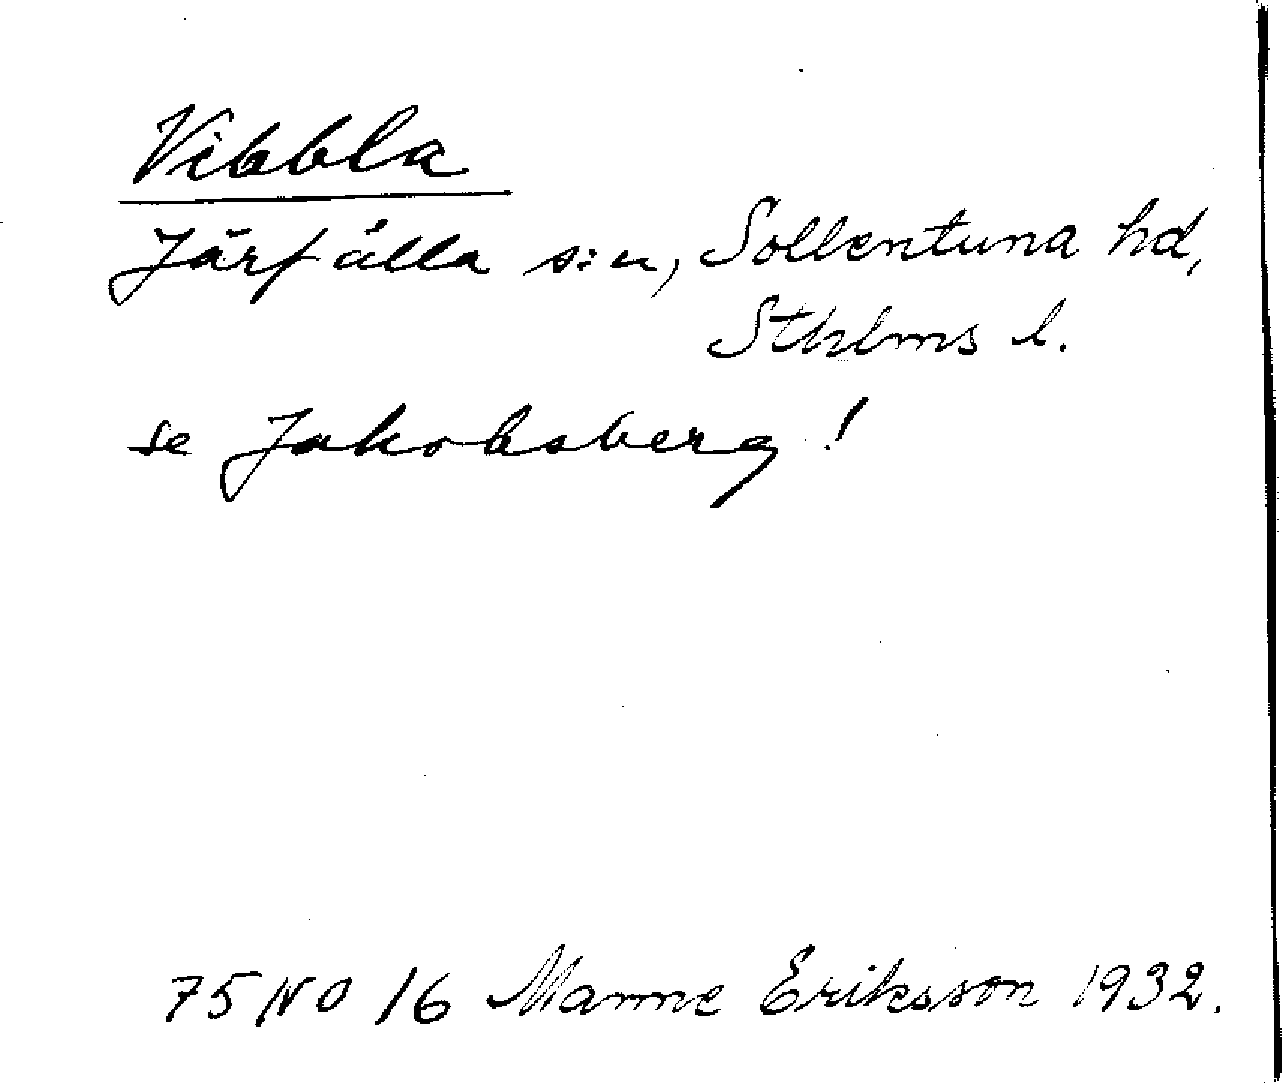 Vibbla
Järfälla s:n, Sollentuna hd,
Sthlms l.
se Jakobsberg!
75 NO 16 Manne Eriksson 1932.